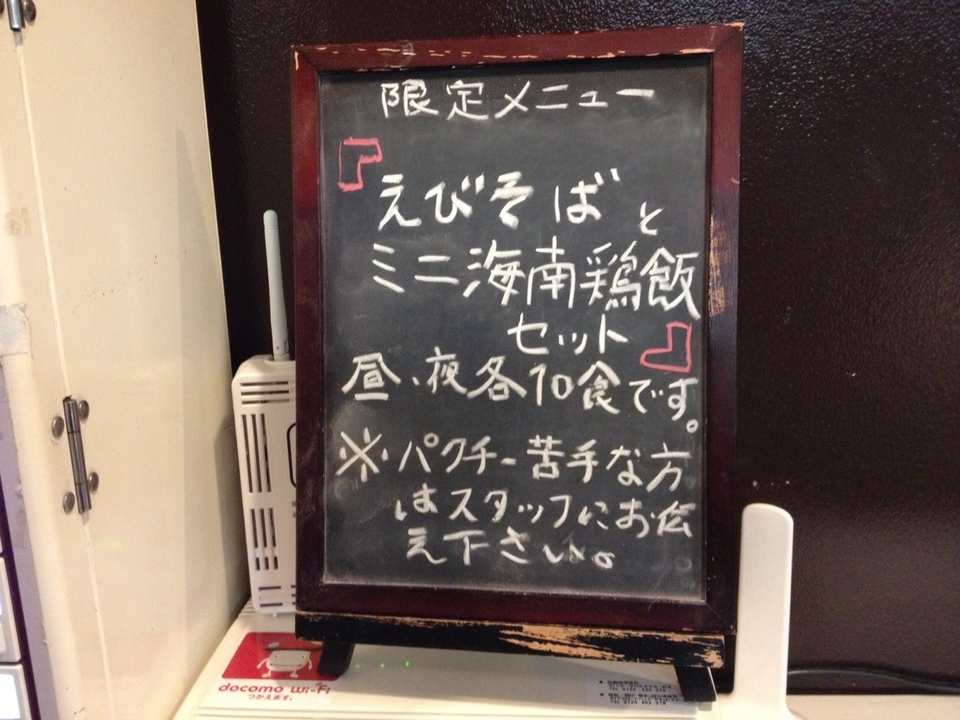 限定メニュー
『えびそばと
ミニ海南鶏飯
セット』
昼、夜各10食です。
※パクチー苦手な方
はスタッフにお伝
え下さい。
docomo Wi-Fi
つかえます。